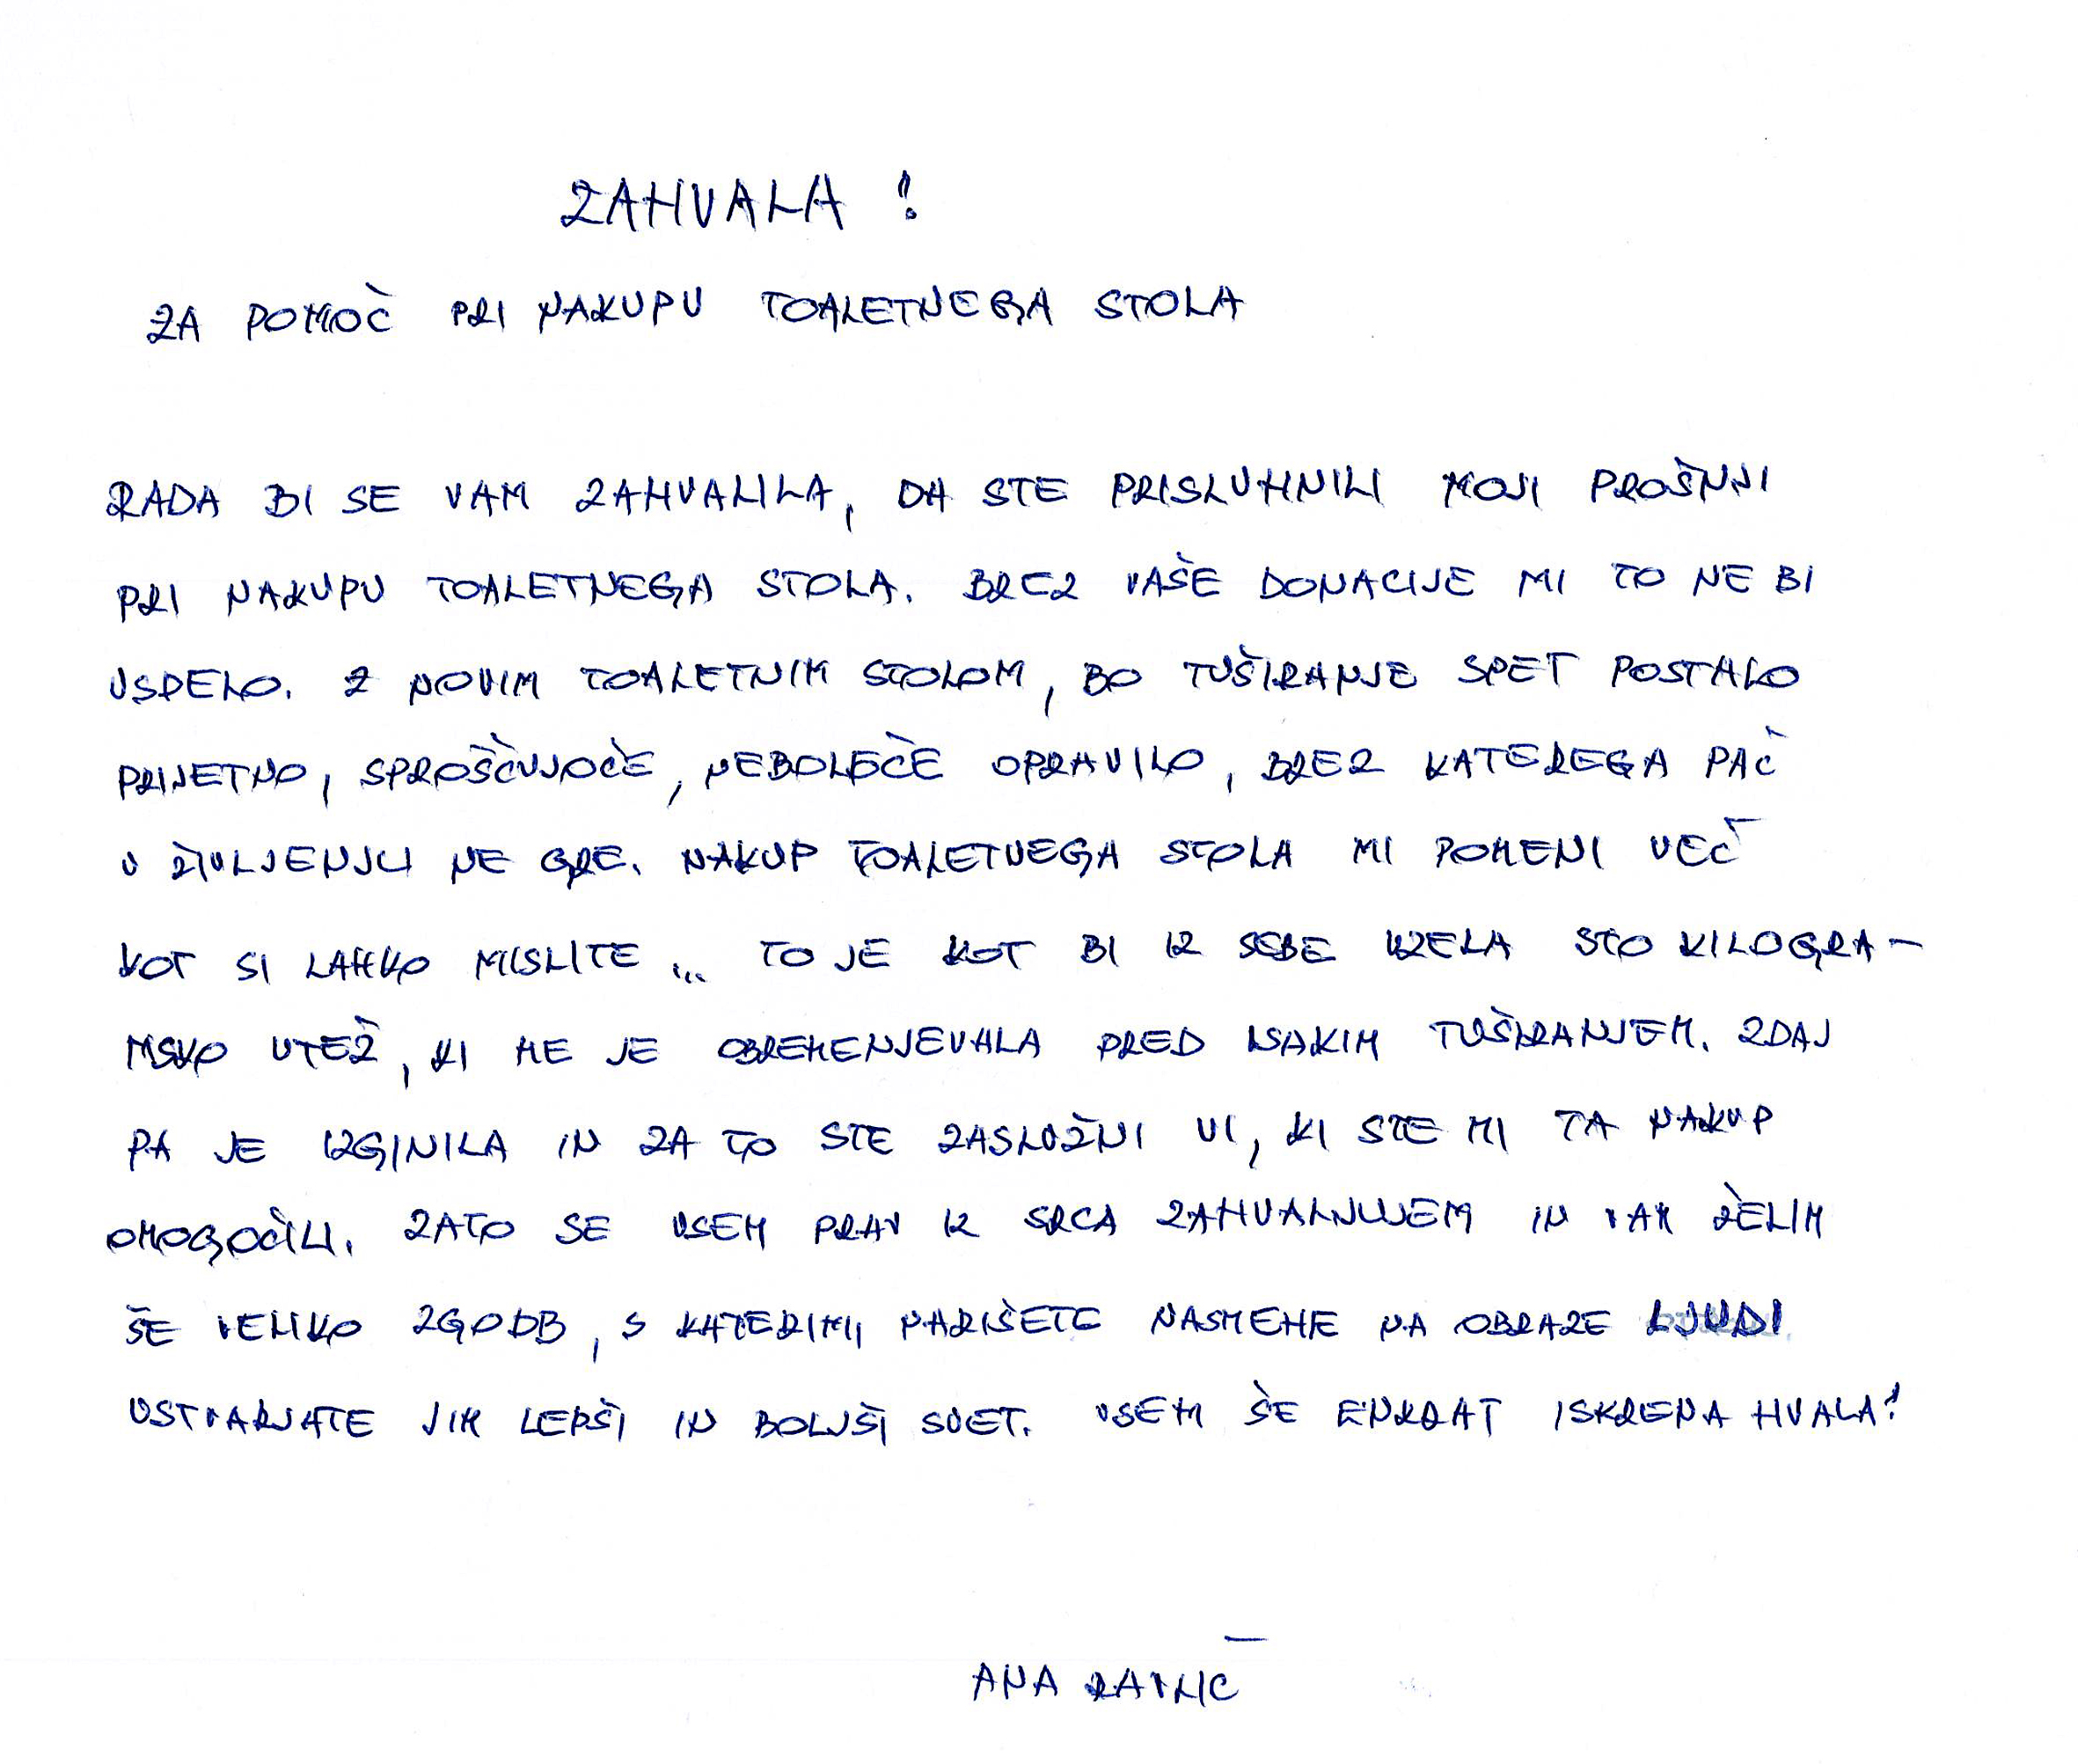 ZAHVALA!
ZA POMOČ PRI NAKUPU TOALETNEGA STOLA
RADA BI SE VAM ZAHVALILA, DA STE PRISLUHNILI MOJI PROŠNJI
PRI NAKUPU TOALETNEGA STOLA. BREZ VAŠE DONACIJE MI TO NE BI
USPELO. Z NOVIM TOALETNIM STOLOM, BO TUŠIRANJE SPET POSTALO
PRIJETNO, SPROŠČUJOČE, NEBOLEČE OPRAVILO, BREZ KATEREGA PAČ
V ŽIVLJENJU NE GRE. NAKUP TOALETNEGA STOLA MI POMENI VEČ
KOT SI LAHKO MISLITE ... TO JE KOT BI IZ SEBE VZELA STO KILOGRA-
MSKO UTEŽ, KI ME JE OBREMENJEVALA PRED VSAKIM TUŠIRANJEM. ZDAJ
PA JE IZGINILA IN ZA TO STE ZASLUŽNI VI, KI STE MI TA NAKUP
OMOGOČILI. ZATO SE VSEM PRAV IZ SRCA ZAHVALJUJEM IN VAM ŽELIM
ŠE VELIKO ZGODB, S KATERIMI NARIŠETE NASMEHE NA OBRAZE LJUDI
USTVARJATE JIM LEPŠI IN BOLJŠI SVET. VSEM ŠE ENKRAT ISKRENA HVALA!
ANA